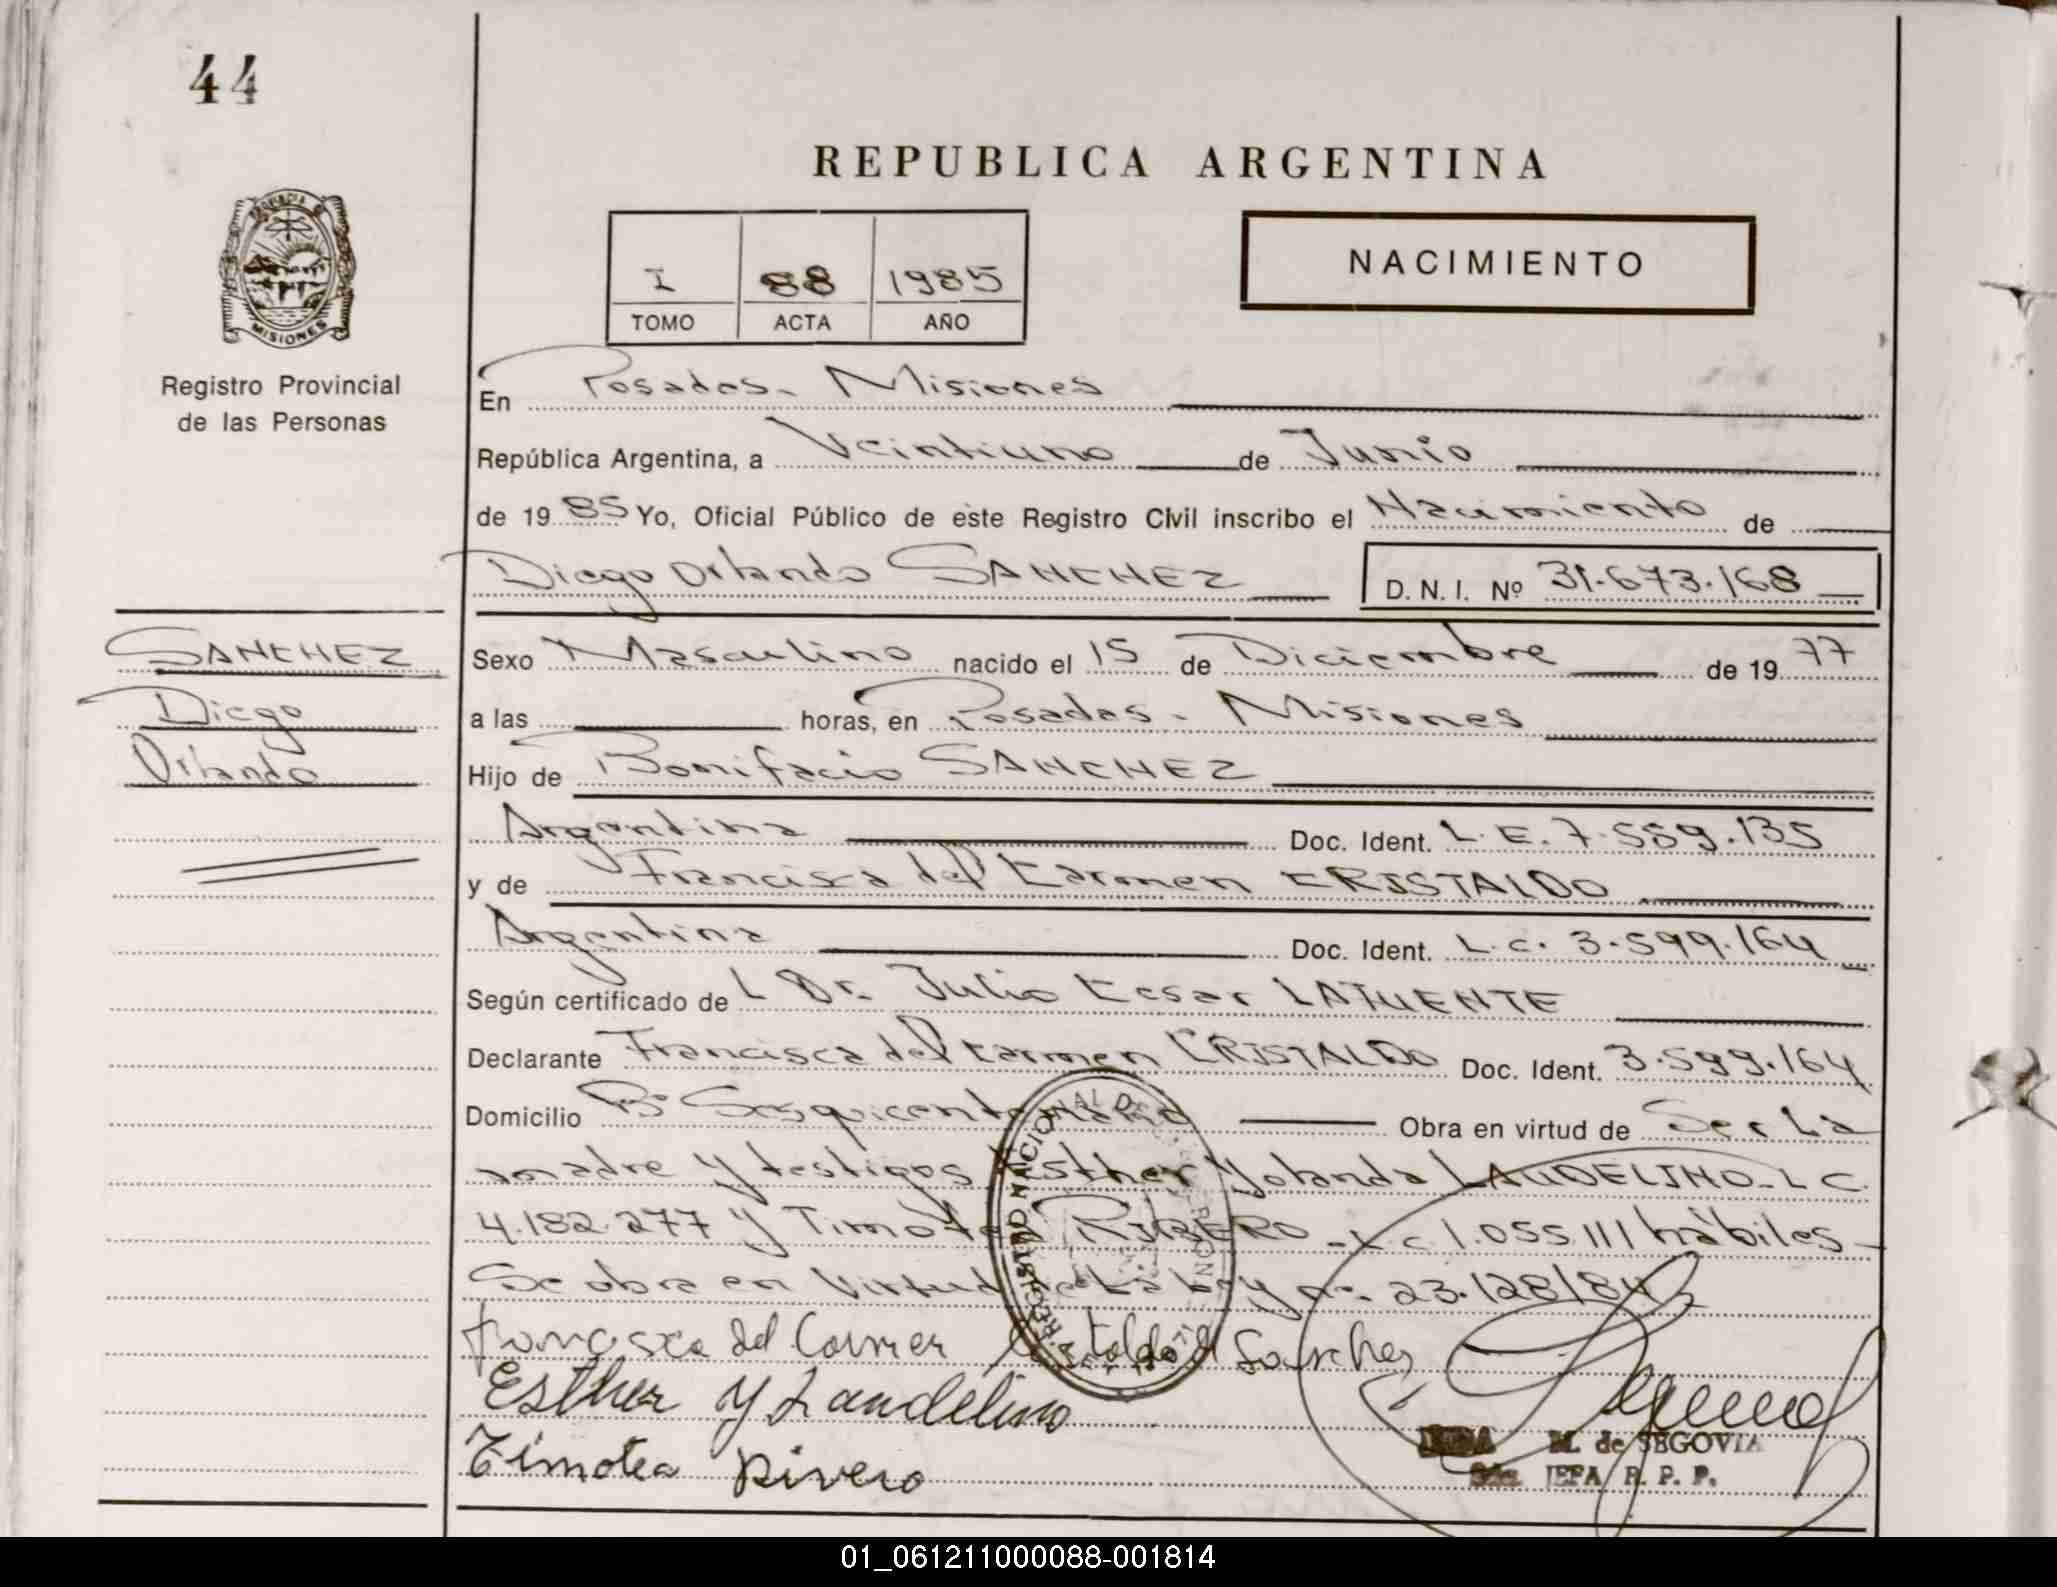 44
REPUBLICA ARGENTINA
I 88 1985
TOMO ACTA AÑO
NACIMIENTO
MISIONES
Registro Provincial
de las Personas
En Posadas - Misiones
República Argentina, a Veintiuno de Junio
de 1985 Yo, Oficial Público de este Registro Civil inscribo el Nacimiento de
Diego Orlando SANCHEZ D. N. I. Nº 31.673.168
SANCHEZ
Diego
Orlando
Sexo Masculino nacido el 15 de Diciembre de 1977
a las horas, en Posadas - Misiones
Hijo de Bonifacio SANCHEZ
Argentina Doc. Ident. L. E. 7.559.135
y de Francisca del Carmen CRISTALDO
Argentina Doc. Ident. L. C. 3.599.164
Según certificado de L Dr. Julio Cesar LAFUENTE
Declarante Francisca del Carmen CRISTALDO Doc. Ident. 3.599.164
Domicilio Bº Sesquicentenario Obra en virtud de Ser La
madre y testigos Esther Yolanda LAUDELINO - L C.
4.182.277 y Timotea RIBERO - L c 1.055111 hábiles -
Se obra en Virtud de la Ley nº 23.128/84
Francisca del Carmen Cristaldo d Sanchez
Esther Y Laudelino
Timotea Rivero
REGISTRO NACIONAL DE
M. de SEGOVIA
JEFA R. P. P.
01_061211000088-001814